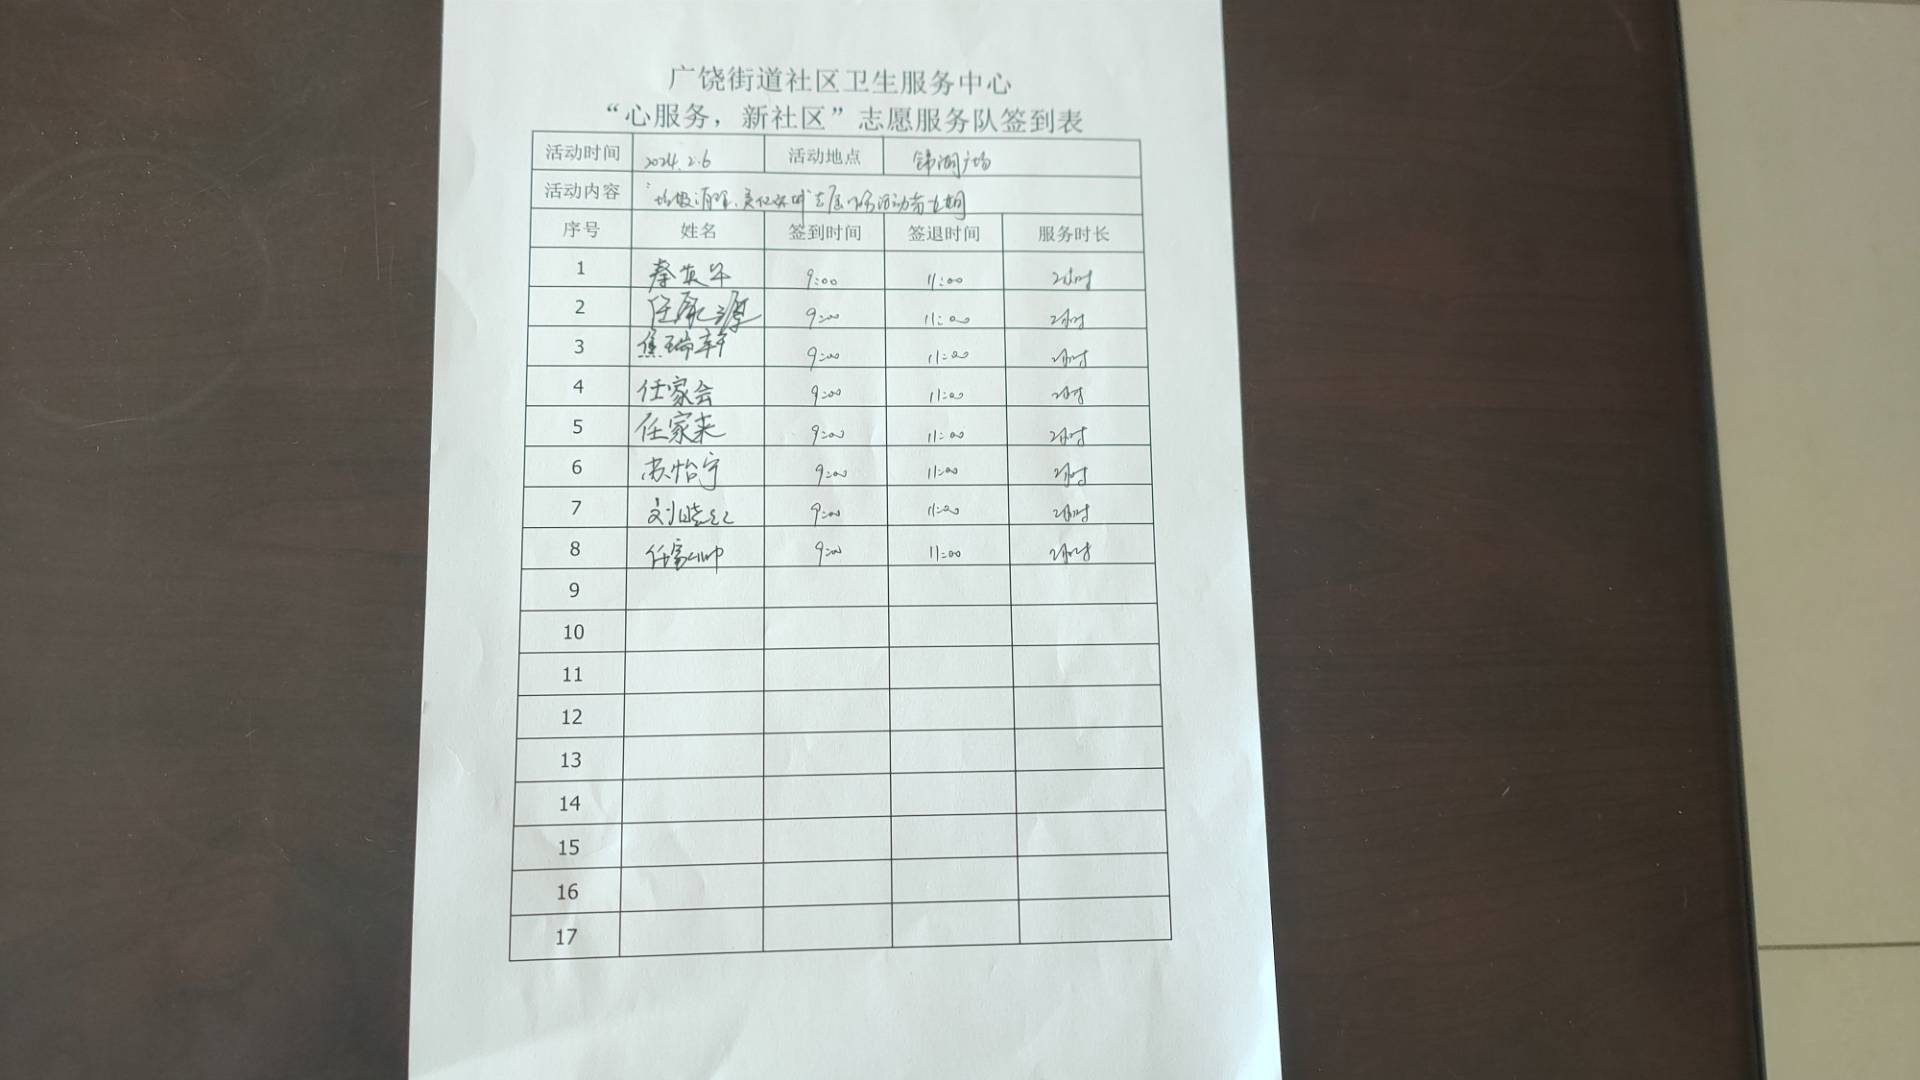 广饶街道社区卫生服务中心
“心服务，新社区”志愿服务队签到表
活动时间 2024.2.6 活动地点 锦湖广场
活动内容 "垃圾清理、美化环境"志愿服务活动第五期
序号 姓名 签到时间 签退时间 服务时长
1 9:00 11:00 2小时
2 任承源 9:00 11:00 2小时
3 焦瑞轩 9:00 11:00 2小时
4 任家会 9:00 11:00 2小时
5 任家来 9:00 11:00 2小时
6 苏怡宁 9:00 11:00 2小时
7 刘晓红 9:00 11:00 2小时
8 任富帅 9:00 11:00 2小时
9
10
11
12
13
14
15
16
17